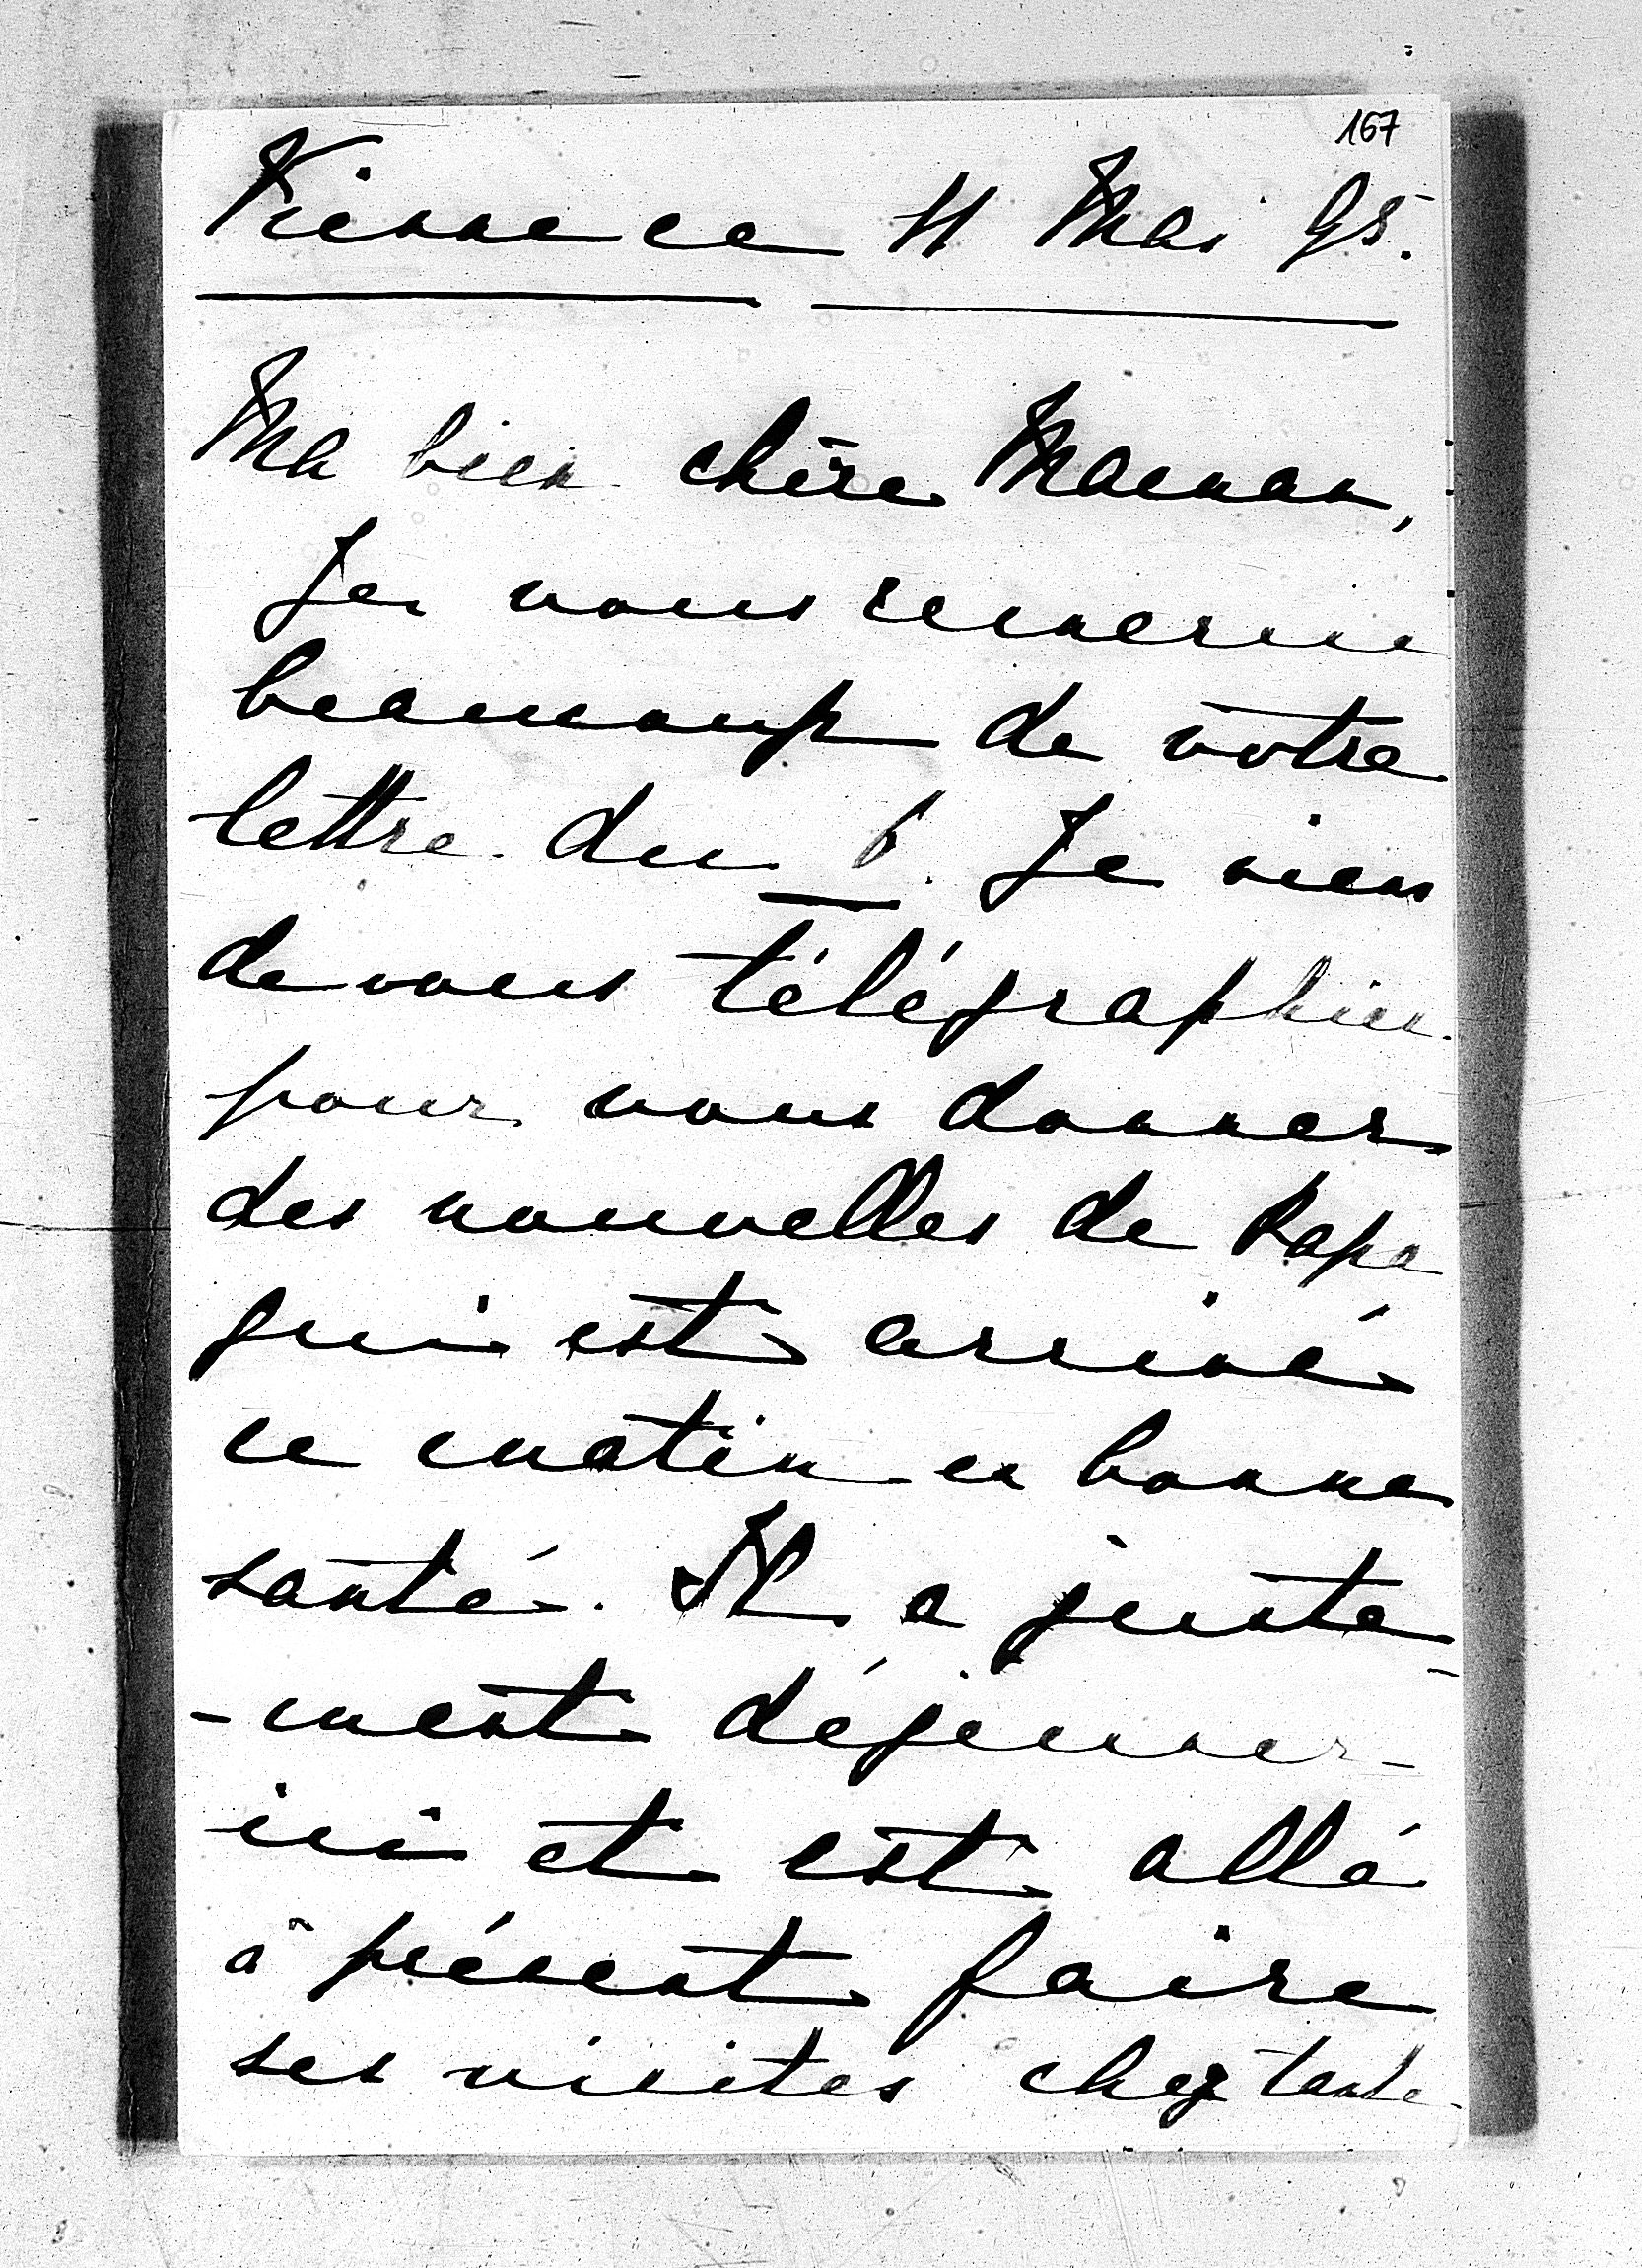 167
Vienne ce 11 Mai 95.
Ma bien chère Maman,
Je vous remercie
beaucoup de votre
lettre du 6. Je viens
de vous télégraphier
pour vous donner
des nouvelles de Papa
qui est arrivé
ce matin en bonne
santé. Il a juste-
-ment déjeuner
ici et est allé
à présent faire
ses visites chez tante